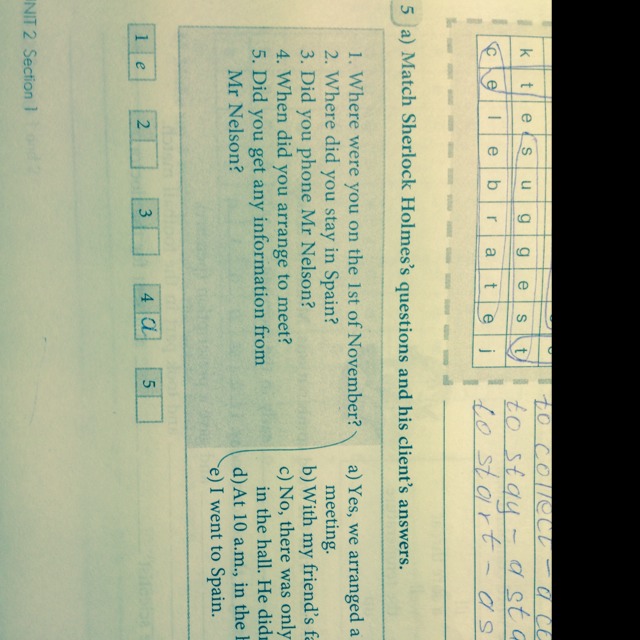 k t e s u g g e s t
c e l e b r a t e j
to collect -
to stay -
to start - as
5 a) Match Sherlock Holmes's questions and his client's answers.
1. Where were you on the 1st of November?
2. Where did you stay in Spain?
3. Did you phone Mr Nelson?
4. When did you arrange to meet?
5. Did you get any information from
Mr Nelson?
a) Yes, we arranged a
meeting.
b) With my friend's
c) No, there was only
in the hall. He
d) At 10 a.m., in the
e) I went to Spain.
1 e 2 3 4 a 5
UNIT 2 Section 1